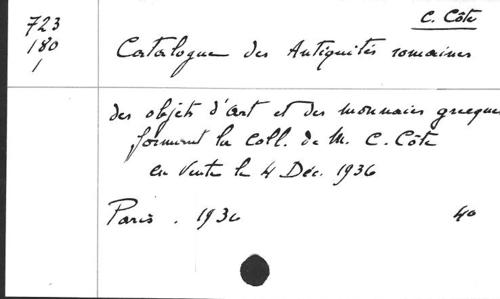 723
180
1
C. Côte
Catalogue des Antiquités romaines
des objets d'art et des monnaies grecques
formant la Coll. de M. C. Côte
en Vente le 4 Déc. 1936
Paris. 1936
4o